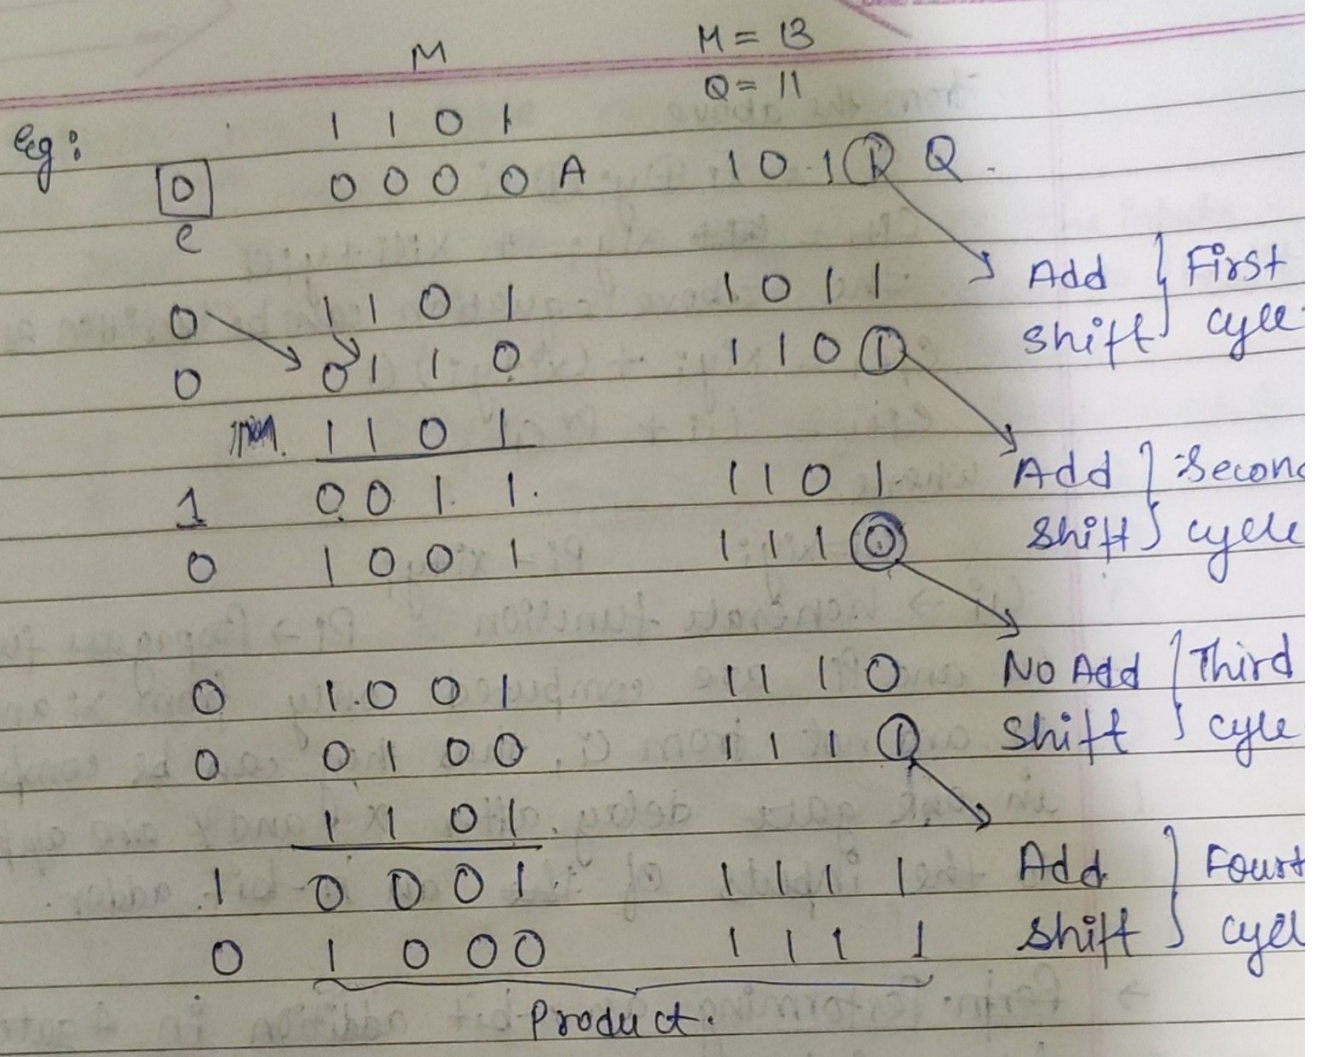 M M = 13
Q = 11
eg: 1 1 0 1
0 0 0 0 0 A 1 0 1 1 Q.
C
0 1 1 0 1 1 0 1 1 Add } First
0 0 1 1 0 1 1 0 1 Shift } cycle
1 1 0 1
1 0 0 1 1 1 1 0 1 Add } Second
0 1 0 0 1 1 1 1 0 Shift } cycle
0 1 0 0 1 1 1 1 0 No Add } Third
0 0 1 0 0 1 1 1 1 Shift } cycle
1 1 0 1
1 0 0 0 1 1 1 1 1 Add } Fourt
0 1 0 0 0 1 1 1 1 Shift } cycl
Product.